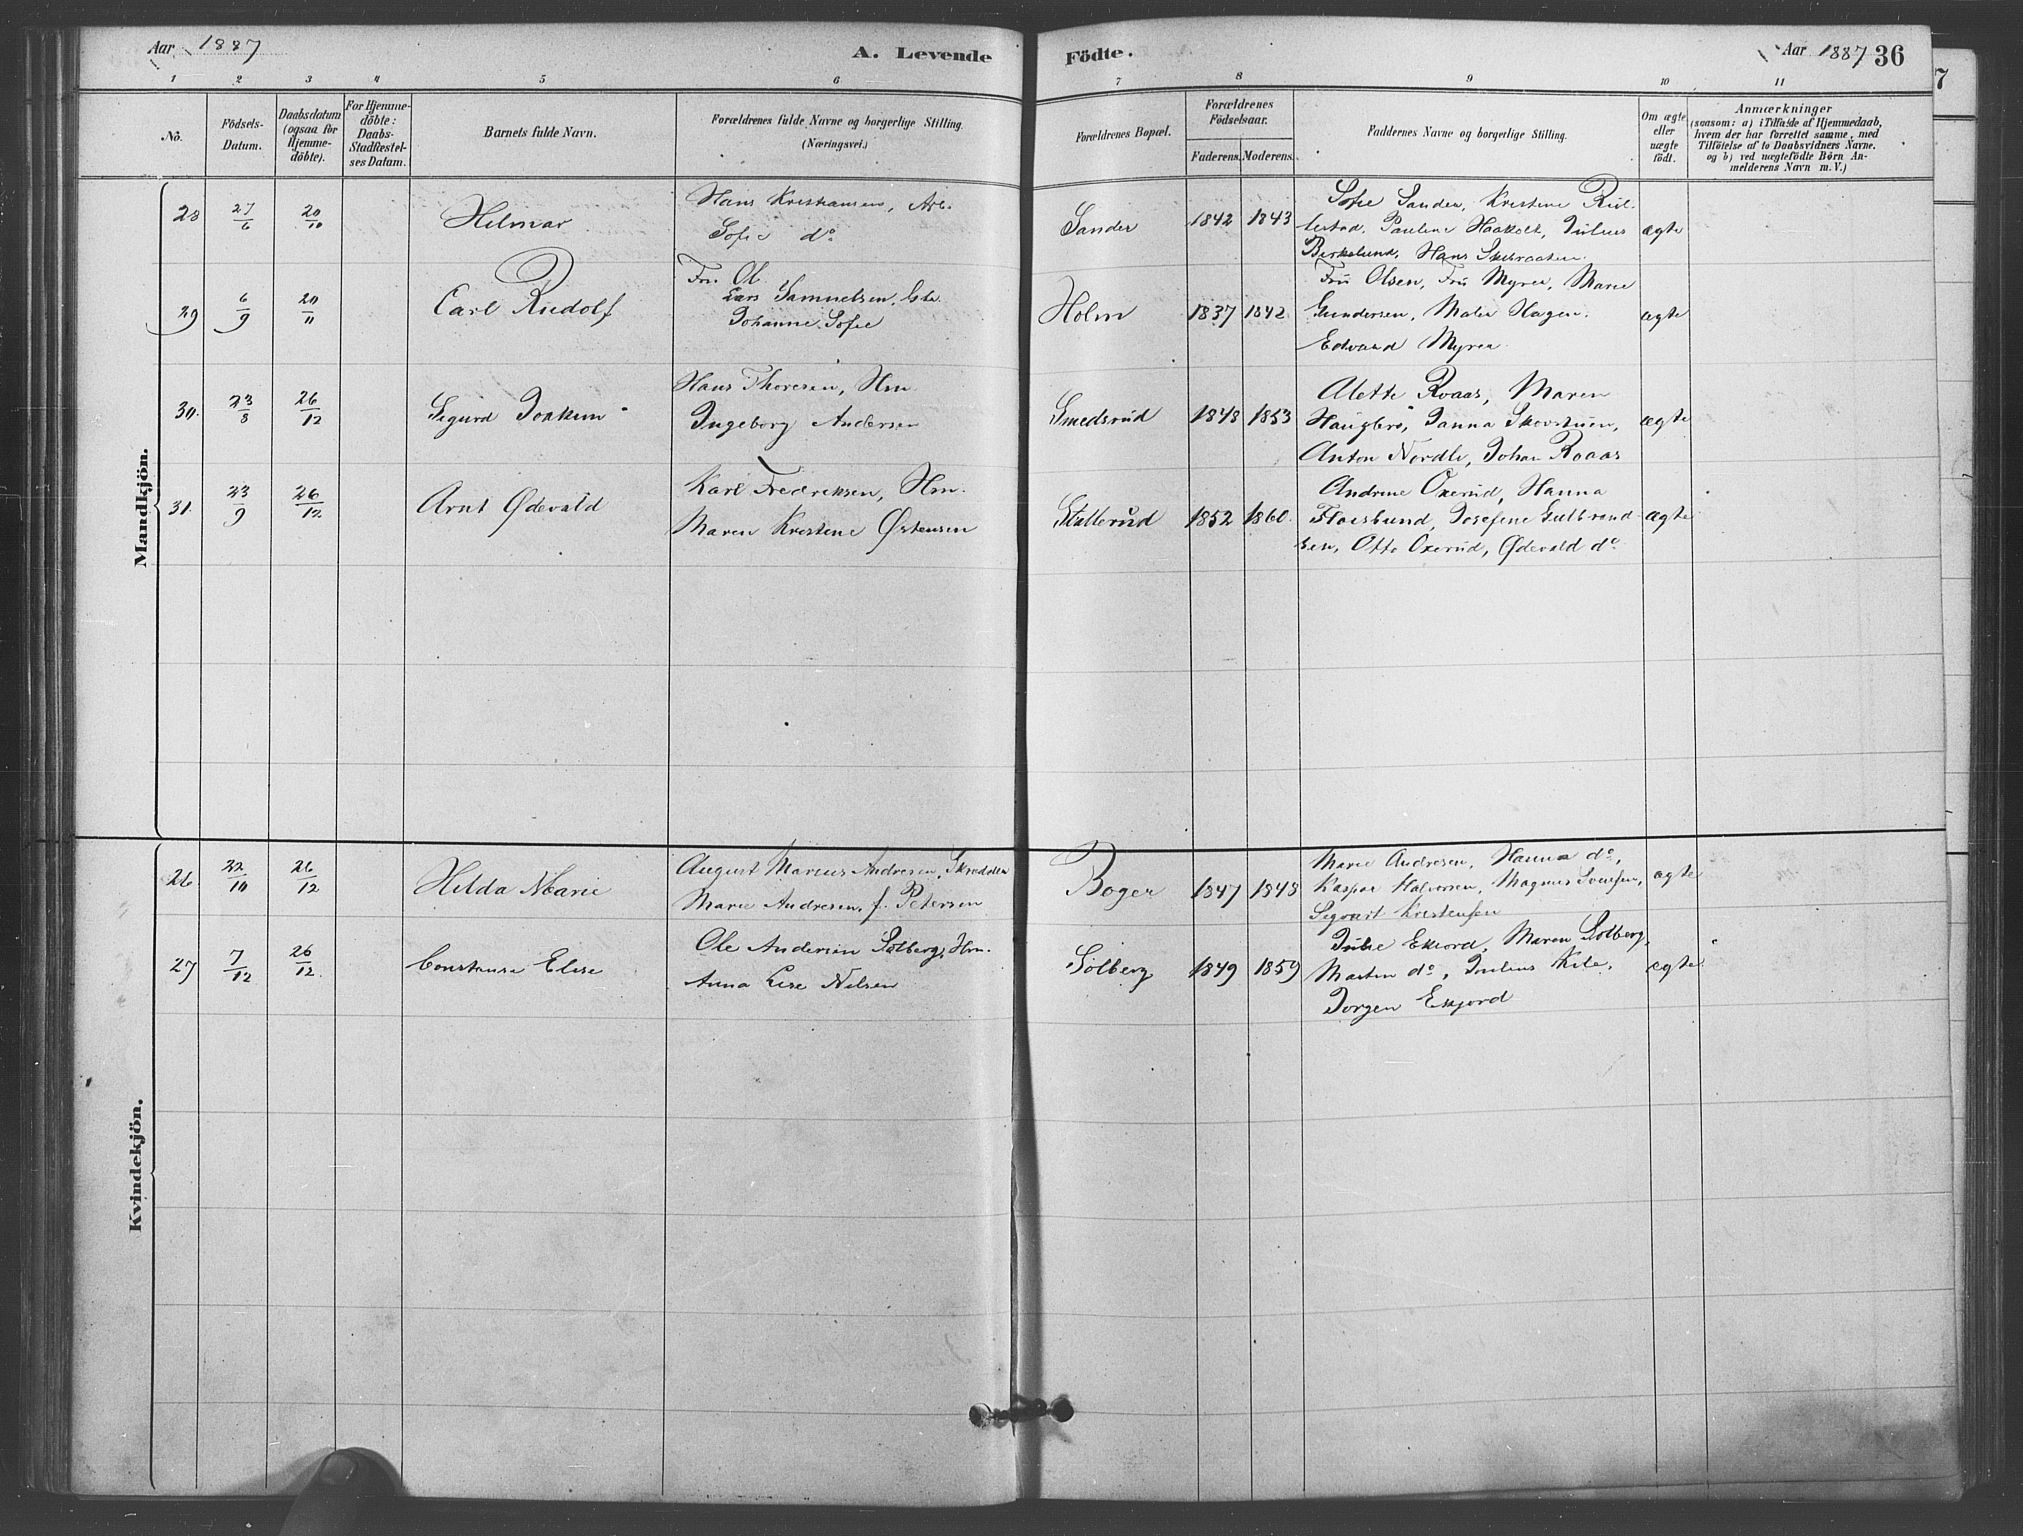 Aar 1887 A. Levende Födte. Aar 1887 36
1 2 3 4 5 6 7 8 9 10 11
No. Födsels-Datum. Daabsdatum (ogsaa for Hjemmedöbte). For Hjemmedöbte: Daabs-Stadfæstelses Datum. Barnets fulde Navn. Forældrenes fulde Navne og borgerlige Stilling. (Næringsvei.) Forældrenes Bopæl. Forældrenes Födselsaar. Faderens. Moderens. Faddernes Navne og borgerlige Stilling. Om ægte eller uægte födt. Anmærkninger (saasom: a) i Tilfælde af Hjemmedaab, hvem der har forrettet samme, med Tilföielse af to Daabsvidners Navne. og b) ved uægtefödte Børn Anmelderens Navn m. V.)
Mandkjön.
28 27/6 20/10 Hilmar Hans Kristiansen, Arb. Sander 1842 1843 Sofie Sander, Kristine
Sofie do Pauline Haakold, Julius ægte
Birkelund, Hans
29 6/9 20/11 Carl Rudolf Fru Ol Holm 1837 1842 Fru Olsen, Fru Myrer, Marie
Lars Samuelsen, Gundersen, Malie Hagen. ægte
Johanne Sofie Edvard Myrer.
30. 23/8 26/12 Sigurd Joakim Hans Thoresen, Hm. Smedsrud 1848 1853 Alette Roaas, Maren
Ingeborg Andersen Haugbro, Janna Skovstuen, ægte
Anton Nordli, Johan Roaas
31. 23/9 26/12 Arnt Ødevald Karl Fredriksen, Hm. Stallerud 1852 1860. Andrine Oxerud, Hanna
Maren Kristine Østensen Floisbund, Josefine Gulbrand- ægte
sen, Otto Oxerud, Ødevald do
Kvindekjön.
26. 22/10 26/12 Hilda Marie August Marius Andresen, Skrædder Boger 1847 1848 Marie Andresen, Hanna do,
Marie Andresen, f. Petersen Kaspar Halvorsen, Magnus ægte
Sigvart Kristensen
27 7/12 26/12 Constanse Elise Ole Andersen Solberg, Hm. Solberg 1849 1859 Julie Ekjord, Maren Solberg,
Anna Lise Nilsen Martin do, Julius Kile, ægte
Jorgen Ekjord